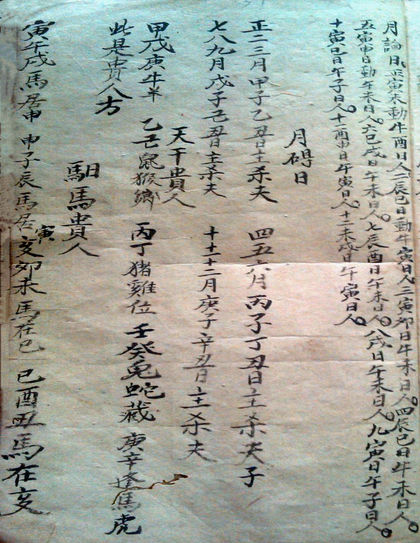 月論日正寅未動午酉日人二辰巳日動午寅日人三寅卯日午未日人四辰巳日午未日人
五寅申日動午未日人六巳戌日午未日人七辰酉日午未日人八戌日午未日人九寅日午子日人
十寅巳日午子日人十一酉申日午寅日人十二未日午寅日人
月碍日
正二三月甲子乙丑日主杀夫 四五六月丙子丁丑日主杀夫子
七八九月戊子己丑日主杀夫 十十一十二月庚子辛丑日主杀夫
天干貴人
甲戊庚牛羊 乙己鼠猴鄉 丙丁猪雞位 壬癸兔蛇藏 庚辛逢馬虎
此是貴人方
馹馬貴人
寅午戌馬居申 申子辰馬居寅 亥卯未馬在巳 巳酉丑馬在亥